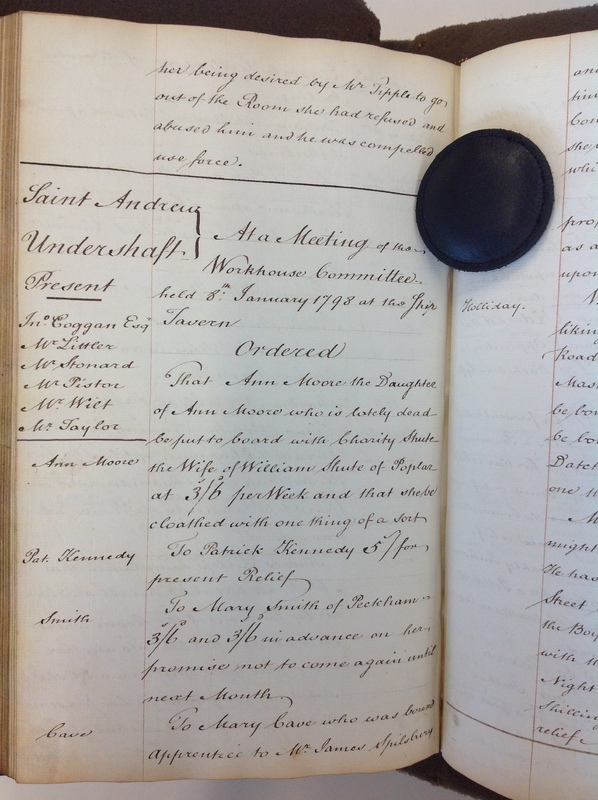 her being desired by Mr Tipple to go
out of the Room she had refused and
abused him and he was compelled
use force.
Saint Andrew
Undershaft
At a Meeting of the
Workhouse Committee
held 8th January 1798 at the Ship
Tavern
Present
Jno Coggan Esqr
Mr Littler
Mr Stonard
Mr Pistor
Mr Wilt
Mr Taylor
Ordered
Ann Moore
That Ann Moore the Daughter
of Ann Moore who is lately dead
be put to board with Charity Shute
the Wife of William Shute of Poplar
at 3/6 per Week and that she be
cloathed with one thing of a sort
Pat. Kennedy
To Patrick Kennedy 5/ for
present Relief
Smith
To Mary Smith of Peckham
3/6 and 3/6 in advance on her
promise not to come again until
next Month
Cave
To Mary Cave who was bound
apprentice to Mr James Spilsbury
Holliday.
liking
Road
be bo
be bo
one
might
He has
Street
the Boy
with th
Night
Shilling
relief